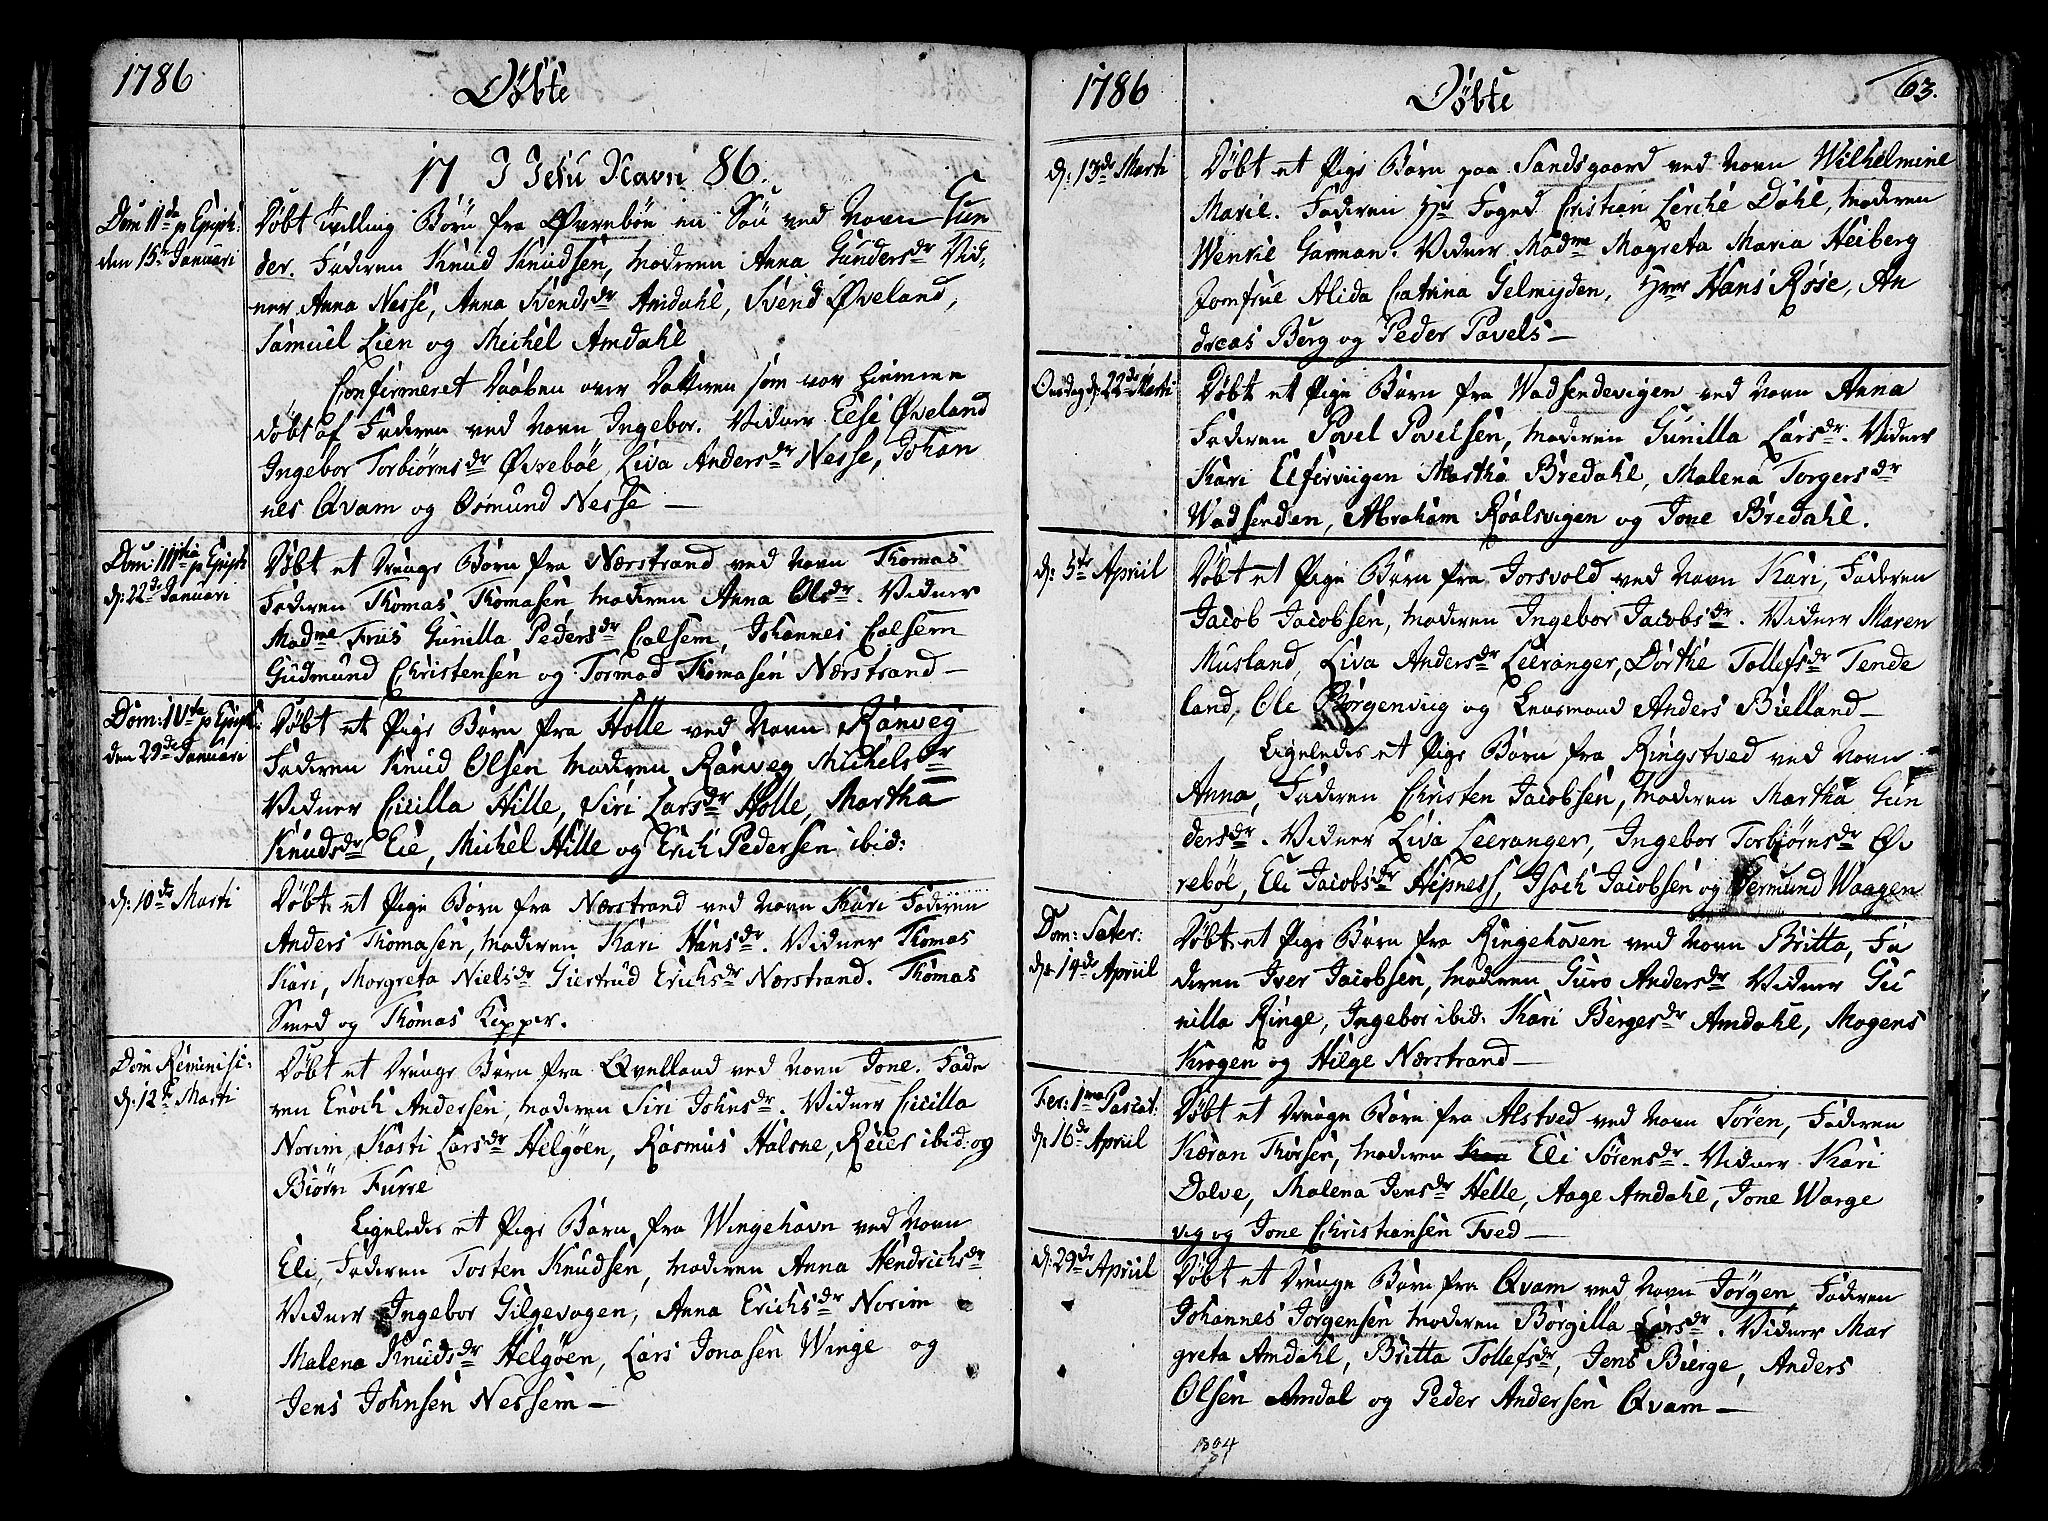 1786
Døbte
17 I Jesu Navn 86.
Dom IIda p Epiph:
den 15de Januari
Døbt Tvilling Børn fra Øvrebøe en Søn ved Navn Gun
der. Faderen Knud Knudsen, Moderen Anna Gundersdr Vid,
ner Anna Nesse, Anna Svendsdr Amdahl, Svend Øveland,
Samuel Lien og Michel Amdahl
Confirmeret Daaben over Datteren som var hiemme
døbt af Faderen ved Navn Ingebor. Vidner Else Øveland
Ingebor Torbiørnsdr Øvrebøe, Liva Andersdr Nesse, Johan
nes Qvam og Osmund Nesse —
Dom: IIItia p Epiph
d: 22de Januari
Døbt et Drenge Børn fra Nærstrand ved Navn Thomas
Faderen Thomas Thomasen, Moderen Anna Olsdr. Vidner
Madme Friis Gunilla Pedersdr Calsem, Johannes Calsem
Gudmund Christensen og Tormod Thomasen Nærstrand —
Dom: IVta p Epiph:
den 29de Januari
Døbt et Pige Børn fra Hölle ved Navn Ranveg
Faderen Knud Olsen Moderen Ranveg Michelsdr
Vidner Cicilla Hille, Siri Larsdr Holle, Martha
Knudsdr Eie, Michel Hille og Erich Pedersen ibid:
d: 10de Marti
Døbt et Pige Børn fra Nærstrand ved Navn Kari Faderen
Anders Thomasen, Moderen Kari Hansdr. Vidner Thomas
Kari, Morgreta Nielsdr Giertrud Erichsdr Nærstrand. Thomas
Smed og Thomas Kipper.
Dom Reminisi:
d: 12te Marti
Døbt et Drenge Børn fra Qvelland ved Navn Jone. Fade
ren Enoch Andersen, Moderen Siri Johnsdr. Vidner Cicilla
Norim, Kasti Larsdr Helgøen, Rasmus Halsne, Reier ibid: og
Biørn Furre
Ligeledes et Pige Børn fra Wingehavn ved Navn
Eli, Faderen Tosten Knudsen, Moderen Anna Hendrichsdr
Vidner Ingebor Gilgevagen, Anna Erichsdr Norim
Malena Knudsdr Helgøen, Lars Jonasen Winge og
Jens Johnsen Nessem —
1786
Døbte
63.
d: 13de Marti
Døbt et Pige Børn paa Sandsgaard ved Navn Wilhelmine
Marie. Faderen Hr Foged Cristian Lerche Dahl, Moderen
Wenkie Garman. Vidner Madme Magreta Maria Heiberg
Jomfrue Alida Catrina Gelmyden, Hrer Hans Røse, An
dreas Berg og Peder Pavels —
Onsdag d: 22de Marti
Døbt et Pige Børn fra Wadsendevigen ved Navn Anna
Faderen Povel Povelsen, Moderen Gunilla Larsdr. Vidner
Kari Elfervigen Martha Bredahl, Malena Torgersdr
Wadsenden, Abraham Roalsvigen og Jone Bredahl.
d: 5te Apriil
Døbt et Pige Børn fra Jorsvold ved Navn Kari, Faderen
Jacob Jacobsen, Moderen Ingebor Jacobsdr. Vidner Maren
Musland, Liva Andersdr Leeranger, Dorthe Tollefsdr Tende
land, Ole Borgenviig og Lensmand Anders Bielland —
Ligeledes et Pige Børn fra Ringstved ved Navn
Anna, Faderen Christen Jacobsen, Moderen Martha Gun
dersdr. Vidner Liva Leeranger, Ingebor Torbiørnsdr Øv
rebøe, Eli Jacobsdr Hipness, Isach Jacobsen og Germund Waagen
Dom: Pater:
d: 14de Apriil
Døbt et Pige Børn fra Ringehaven ved Navn Britta, Fa
deren Iver Jacobsen, Moderen Guro Andersdr Vidner Gu
nilla Ringe, Ingebor ibid: Kari Bergesdr Amdahl, Mogens
Krogen og Hilge Nærstrand —
Fer: 1ma Pascat:
d: 16de Apriil
Døbt et Drenge Børn fra Alstved ved Navn Sören, Faderen
Kæran Thorsen, Moderen Eli Sörensdr. Vidner Kari
Dalve, Malena Jensdr Helle, Aage Amdahl, Jone Warge
vig og Jone Christiansen Tved —
d: 29de Apriil
Døbt et Drenge Børn fra Qvam ved Navn Jørgen, Faderen
Johannes Jørgensen Moderen Borgilla Larsdr. Vidner Mar
greta Amdahl, Britta Tollefsdr, Jens Bierge, Anders
Olsen Amdal og Peder Andersen Qvam —